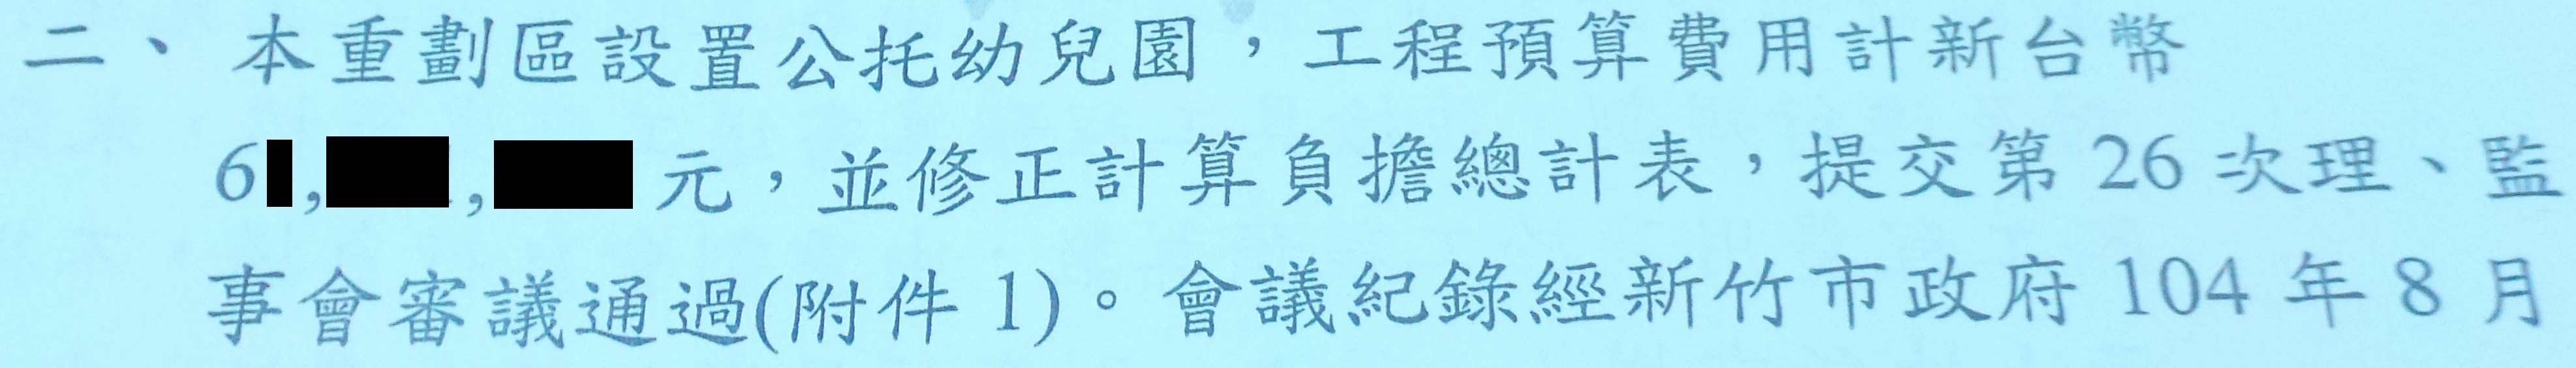 二、本重劃區設置公托幼兒園，工程預算費用計新台幣
6,,元，並修正計算負擔總計表，提交第 26 次理、監
事會審議通過(附件 1)。會議紀錄經新竹市政府 104 年 8 月